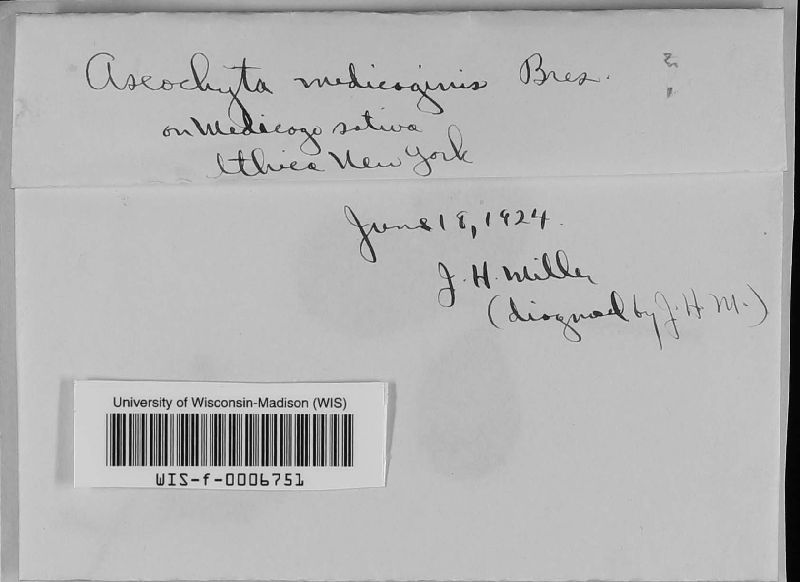 Ascochyta medicaginis Bres.
on Medicago sativa
Ithica New York
June 18, 1924.
J. H. Miller
(diagnosed by J. H. M.)
University of Wisconsin-Madison (WIS)
WIS-f-0006751